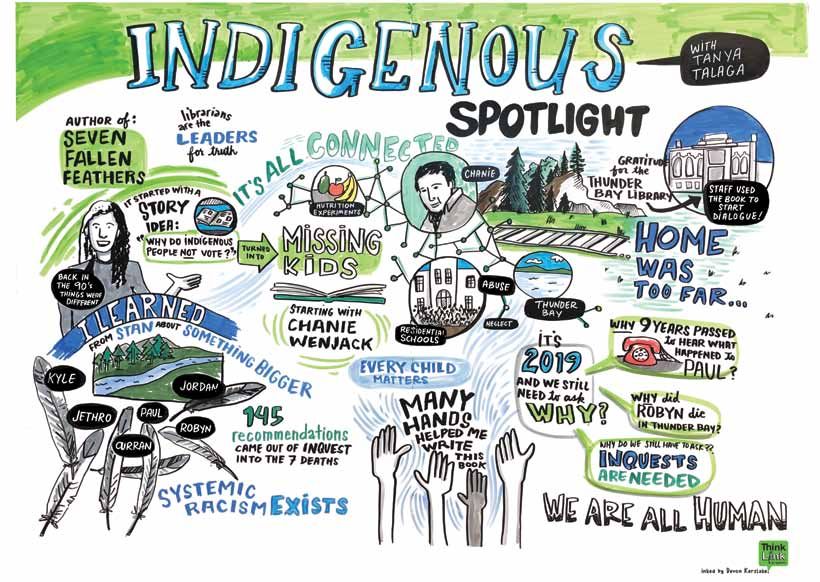 INDIGENOUS
SPOTLIGHT
WITH
TANYA
TALAGA
AUTHOR of:
SEVEN
FALLEN
FEATHERS
librarians
are the
LEADERS
for truth
IT'S ALL CONNECTED
IT STARTED WITH A
STORY
IDEA:
"WHY DO INDIGENOUS
PEOPLE NOT VOTE?"
TURNED
INTO
MISSING
KIDS
NUTRITION
EXPERIMENTS
CHANIE
GRATITUDE
for the
THUNDER
BAY LIBRARY
STAFF USED
THE BOOK TO
START
DIALOGUE!
HOME
WAS
TOO FAR...
BACK IN
THE 90'S
THINGS WERE
DIFFERENT
I LEARNED
FROM STAN ABOUT SOMETHING BIGGER
STARTING WITH
CHANIE
WENJACK
RESIDENTIAL
SCHOOLS
ABUSE
NEGLECT
THUNDER
BAY
KYLE
JETHRO
PAUL
JORDAN
CURRAN
ROBYN
145
recommendations
CAME OUT OF INQUEST
INTO THE 7 DEATHS
SYSTEMIC
RACISM EXISTS
EVERY CHILD
MATTERS
MANY
HANDS
HELPED ME
WRITE
THIS
BOOK
IT'S
2019
AND WE STILL
NEED to ask
WHY?
WHY 9 YEARS PASSED
to HEAR WHAT
HAPPENED to
PAUL?
WHY did
ROBYN die
IN THUNDER BAY?
WHY DO WE STILL HAVE TO ASK??
INQUESTS
ARE NEEDED
WE ARE ALL HUMAN
Think
Link